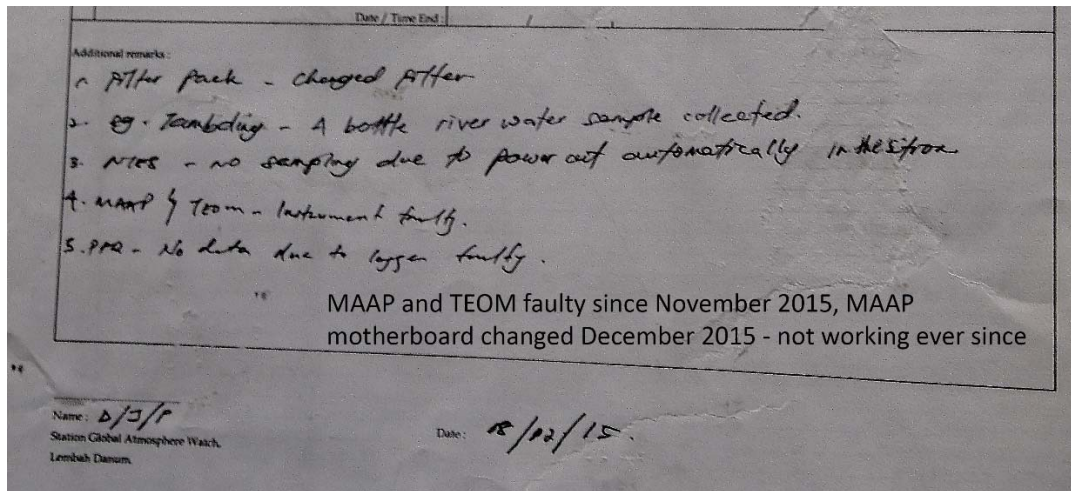 Date / Time End :
Additional remarks :
1. Filter pack - changed filter
2. eg. Tembaling - A bottle river water sample collected.
3. NIES - no sampling due to power out automatically in the
4. MAAP & TEOM - Instrument faulty.
5. PFR - No data due to logger faulty.
MAAP and TEOM faulty since November 2015, MAAP
motherboard changed December 2015 - not working ever since
Name : D/J/P
Date : 18/02/15.
Station Global Atmosphere Watch,
Lembah Danum.